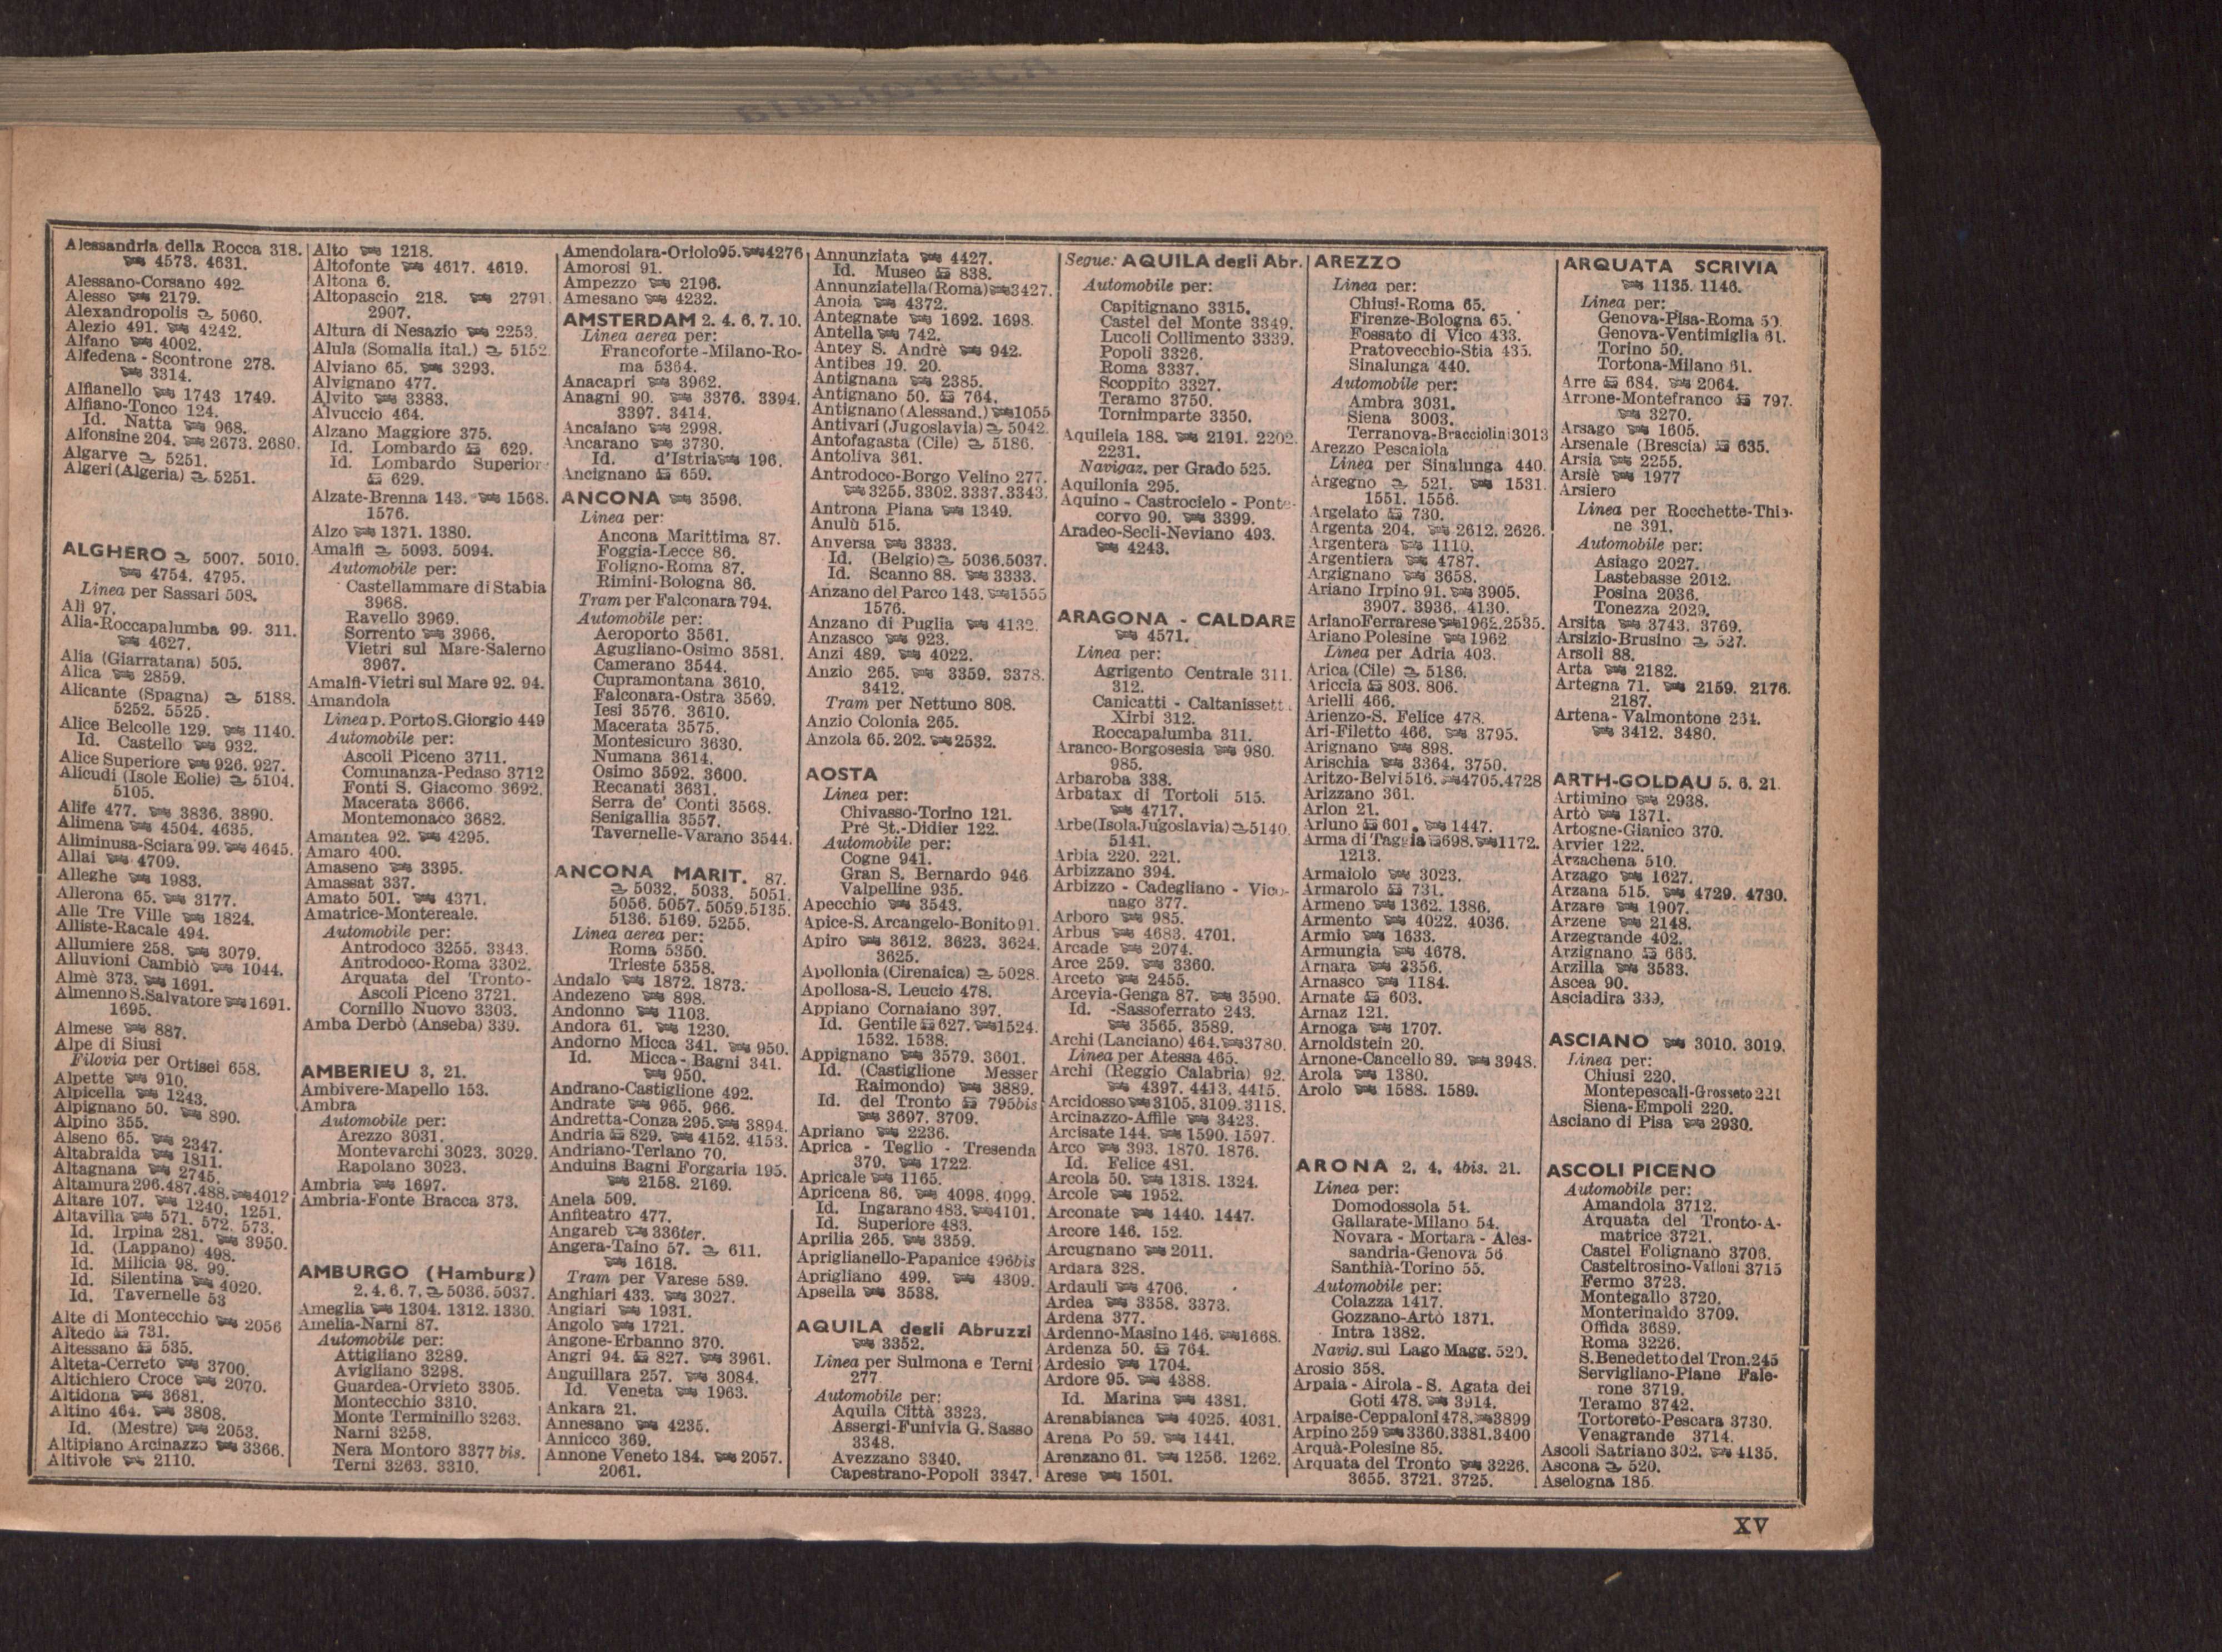 BIBLIOTECA
Alessandria della Rocca 318.
4573. 4631.
Alessano-Corsano 492.
Alesso 2179.
Alexandropolis 5060.
Alezio 491. 4242.
Alfano 4002.
Alfedena - Scontrone 278.
3314.
Alfianello 1743 1749.
Alfiano-Tonco 124.
Id. Natta 968.
Alfonsine 204. 2673. 2680.
Algarve 5251.
Algeri (Algeria) 5251.
ALGHERO 5007. 5010.
4754. 4795.
Linea per Sassari 508.
Alì 97.
Alia-Roccapalumba 99. 311.
4627.
Alia (Giarratana) 505.
Alica 2859.
Alicante (Spagna) 5188.
5252. 5525.
Alice Belcolle 129. 1140.
Id. Castello 932.
Alice Superiore 926. 927.
Alicudi (Isole Eolie) 5104.
5105.
Alife 477. 3836. 3890.
Alimena 4504. 4635.
Aliminusa-Sciara 99. 4645.
Allai 4709.
Alleghe 1983.
Allerona 65. 3177.
Alle Tre Ville 1824.
Alliste-Racale 494.
Allumiere 258. 3079.
Alluvioni Cambiò 1044.
Almè 373. 1691.
Almenno S. Salvatore 1691.
1695.
Almese 887.
Alpe di Siusi
Filovia per Ortisei 658.
Alpette 910.
Alpicella 1243.
Alpignano 50. 890.
Alpino 355.
Alseno 65. 2347.
Altabraida 1811.
Altagnana 2745.
Altamura 296.487.488. 4012
Altare 107. 1240. 1251.
Altavilla 571. 572. 573.
Id. Irpina 281. 3950.
Id. (Lappano) 498.
Id. Milicia 98. 99.
Id. Silentina 4020.
Id. Tavernelle 53
Alte di Montecchio 2056
Altedo 731.
Altessano 535.
Alteta-Cerreto 3700.
Altichiero Croce 2070.
Altidona 3681.
Altino 464. 3808.
Id. (Mestre) 2053.
Altipiano Arcinazzo 3366.
Altivole 2110.
Alto 1218.
Altofonte 4617. 4619.
Altona 6.
Altopascio 218. 2791
2907.
Altura di Nesazio 2253.
Alula (Somalia ital.) 5152
Alviano 65. 3293.
Alvignano 477.
Alvito 3383.
Alvuccio 464.
Alzano Maggiore 375.
Id. Lombardo 629.
Id. Lombardo Superior
629.
Alzate-Brenna 143. 1568.
1576.
Alzo 1371. 1380.
Amalfi 5093. 5094.
Automobile per:
Castellammare di Stabia
3968.
Ravello 3969.
Sorrento 3966.
Vietri sul Mare-Salerno
3967.
Amalfi-Vietri sul Mare 92. 94.
Amandola
Linea p. Porto S. Giorgio 449
Automobile per:
Ascoli Piceno 3711.
Comunanza-Pedaso 3712
Fonti S. Giacomo 3692.
Macerata 3666.
Montemonaco 3682.
Amantea 92. 4295.
Amaro 400.
Amaseno 3395.
Amassat 337.
Amato 501. 4371.
Amatrice-Montereale.
Automobile per:
Antrodoco 3255. 3343.
Antrodoco-Roma 3302.
Arquata del Tronto-
Ascoli Piceno 3721.
Cornillo Nuovo 3303.
Amba Derbò (Anseba) 339.
AMBERIEU 3, 21.
Ambivere-Mapello 153.
Ambra
Automobile per:
Arezzo 3031.
Montevarchi 3023. 3029.
Rapolano 3023.
Ambria 1697.
Ambria-Fonte Bracca 373.
AMBURGO (Hamburg)
2.4.6.7. 5036.5037.
Ameglia 1304. 1312. 1330.
Amelia-Narni 87.
Automobile per:
Attigliano 3289.
Avigliano 3298.
Guardea-Orvieto 3305.
Montecchio 3310.
Monte Terminillo 3263.
Narni 3258.
Nera Montoro 3377 bis.
Terni 3263. 3310.
Amendolara-Oriolo 95. 4276
Amorosi 91.
Ampezzo 2196.
Amesano 4232.
AMSTERDAM 2. 4. 6. 7. 10.
Linea aerea per:
Francoforte-Milano-Ro-
ma 5364.
Anacapri 3962.
Anagni 90. 3376. 3394.
3397. 3414.
Ancaiano 2998.
Ancarano 3730.
Id. d'Istria 196.
Ancignano 659.
ANCONA 3596.
Linea per:
Ancona Marittima 87.
Foggia-Lecce 86.
Foligno-Roma 87.
Rimini-Bologna 86.
Tram per Falconara 794.
Automobile per:
Aeroporto 3561.
Agugliano-Osimo 3581.
Camerano 3544.
Cupramontana 3610.
Falconara-Ostra 3569.
Iesi 3576. 3610.
Macerata 3575.
Montesicuro 3630.
Numana 3614.
Osimo 3592. 3600.
Recanati 3631.
Serra de' Conti 3568.
Senigallia 3557.
Tavernelle-Varano 3544.
ANCONA MARIT. 87.
5032. 5033. 5051.
5056. 5057. 5059.5135.
5136. 5169. 5255.
Linea aerea per:
Roma 5350.
Trieste 5358.
Andalo 1872. 1873.
Andezeno 898.
Andonno 1103.
Andora 61. 1230.
Andorno Micca 341. 950.
Id. Micca - Bagni 341.
950.
Andrano-Castiglione 492.
Andrate 965. 966.
Andretta-Conza 295. 3894.
Andria 829. 4152. 4153.
Andriano-Terlano 70.
Anduins Bagni Forgaria 195.
2158. 2169.
Anela 509.
Anfiteatro 477.
Angareb 336ter.
Angera-Taino 57. 611.
1618.
Tram per Varese 589.
Anghiari 433. 3027.
Angiari 1931.
Angolo 1721.
Angone-Erbanno 370.
Angri 94. 827. 3961.
Anguillara 257. 3084.
Id. Veneta 1963.
Ankara 21.
Annesano 4235.
Annicco 369.
Annone Veneto 184. 2057.
2061.
Annunziata 4427.
Id. Museo 838.
Annunziatella (Roma) 3427.
Anoia 4372.
Antegnate 1692. 1698.
Antella 742.
Antey S. Andrè 942.
Antibes 19. 20.
Antignana 2385.
Antignano 50. 764.
Antignano (Alessand.) 1055
Antivari (Jugoslavia) 5042.
Antofagasta (Cile) 5186.
Antoliva 361.
Antrodoco-Borgo Velino 277.
3255.3302.3337.3343.
Antrona Piana 1349.
Anulù 515.
Anversa 3333.
Id. (Belgio) 5036.5037.
Id. Scanno 88. 3333.
Anzano del Parco 143. 1555
1576.
Anzano di Puglia 4132.
Anzasco 923.
Anzi 489. 4022.
Anzio 265. 3359. 3378.
3412.
Tram per Nettuno 808.
Anzio Colonia 265.
Anzola 65. 202. 2532.
AOSTA
Linea per:
Chivasso-Torino 121.
Pré St.-Didier 122.
Automobile per:
Cogne 941.
Gran S. Bernardo 946
Valpelline 935.
Apecchio 3543.
Apice-S. Arcangelo-Bonito 91.
Apiro 3612. 3623. 3624.
3625.
Apollonia (Cirenaica) 5028.
Apollosa-S. Leucio 478.
Appiano Cornaiano 397.
Id. Gentile 627. 1524.
1532. 1538.
Appignano 3579. 3601.
Id. (Castiglione Messer
Raimondo) 3889.
Id. del Tronto 795bis
3697. 3709.
Apriano 2236.
Aprica - Teglio - Tresenda
379. 1722.
Apricale 1165.
Apricena 86. 4098. 4099.
Id. Ingarano 483. 4101.
Id. Superiore 483.
Aprilia 265. 3359.
Apriglianello-Papanice 496bis
Aprigliano 499. 4309.
Apsella 3538.
AQUILA degli Abruzzi
3352.
Linea per Sulmona e Terni
277.
Automobile per:
Aquila Città 3323.
Assergi-Funivia G. Sasso
3348.
Avezzano 3340.
Capestrano-Popoli 3347.
Segue: AQUILA degli Abr.
Automobile per:
Capitignano 3315.
Castel del Monte 3349.
Lucoli Collimento 3339.
Popoli 3326.
Roma 3337.
Scoppito 3327.
Teramo 3750.
Tornimparte 3350.
Aquileia 188. 2191. 2202.
2231.
Navigaz. per Grado 525.
Aquilonia 295.
Aquino - Castrocielo - Ponte-
corvo 90. 3399.
Aradeo-Seclì-Neviano 493.
4243.
ARAGONA - CALDARE
4571.
Linea per:
Agrigento Centrale 311.
312.
Canicattì - Caltanissett
Xirbi 312.
Roccapalumba 311.
Aranco-Borgosesia 980.
985.
Arbaroba 338.
Arbatax di Tortolì 515.
4717.
Arbe (Isola Jugoslavia) 5140.
5141.
Arbia 220. 221.
Arbizzano 394.
Arbizzo - Cadegliano - Vico-
nago 377.
Arboro 985.
Arbus 4683. 4701.
Arcade 2074.
Arce 259. 3360.
Arceto 2455.
Arcevia-Genga 87. 3590.
Id. -Sassoferrato 243.
3565. 3589.
Archi (Lanciano) 464. 3780.
Linea per Atessa 465.
Archi (Reggio Calabria) 92.
4397. 4413. 4415.
Arcidosso 3105. 3109. 3118.
Arcinazzo-Affile 3423.
Arcisate 144. 1590. 1597.
Arco 393. 1870. 1876.
Id. Felice 481.
Arcola 50. 1318. 1324.
Arcole 1952.
Arconate 1440. 1447.
Arcore 146. 152.
Arcugnano 2011.
Ardara 328.
Ardauli 4706.
Ardea 3358. 3373.
Ardena 377.
Ardenno-Masino 146. 1668.
Ardenza 50. 764.
Ardesio 1704.
Ardore 95. 4388.
Id. Marina 4381.
Arenabianca 4025. 4031.
Arena Po 59. 1441.
Arenzano 61. 1256. 1262.
Arese 1501.
AREZZO
Linea per:
Chiusi-Roma 65.
Firenze-Bologna 65.
Fossato di Vico 433.
Pratovecchio-Stia 435.
Sinalunga 440.
Automobile per:
Ambra 3031.
Siena 3003.
Terranova-Bracciolini 3013
Arezzo Pescaiola
Linea per Sinalunga 440.
Argegno 521. 1531.
1551. 1556.
Argelato 730.
Argenta 204. 2612. 2626.
Argentera 1110.
Argentiera 4787.
Argignano 3658.
Ariano Irpino 91. 3905.
3907. 3936. 4130.
Ariano Ferrarese 1962. 2535.
Ariano Polesine 1962
Linea per Adria 403.
Arica (Cile) 5186.
Ariccia 803. 806.
Arielli 466.
Arienzo-S. Felice 478.
Ari-Filetto 466. 3795.
Arignano 898.
Arischia 3364. 3750.
Aritzo-Belvì 516. 4705.4728
Arizzano 361.
Arlon 21.
Arluno 601. 1447.
Arma di Taggia 698. 1172.
1213.
Armaiolo 3023.
Armarolo 731.
Armeno 1362. 1386.
Armento 4022. 4036.
Armio 1633.
Armungia 4678.
Arnara 3356.
Arnasco 1184.
Arnate 603.
Arnaz 121.
Arnoga 1707.
Arnoldstein 20.
Arnone-Cancello 89. 3948.
Arola 1380.
Arolo 1588. 1589.
ARONA 2, 4, 4bis. 21.
Linea per:
Domodossola 54.
Gallarate-Milano 54.
Novara - Mortara - Ales-
sandria-Genova 56.
Santhià-Torino 55.
Automobile per:
Colazza 1417.
Gozzano-Artò 1371.
Intra 1382.
Navig. sul Lago Magg. 520.
Arosio 358.
Arpaia - Airola - S. Agata dei
Goti 478. 3914.
Arpaise-Ceppaloni 478. 3899
Arpino 259 3360.3381.3400
Arquà-Polesine 85.
Arquata del Tronto 3226.
3655. 3721. 3725.
ARQUATA SCRIVIA
1135. 1146.
Linea per:
Genova-Pisa-Roma 50.
Genova-Ventimiglia 61.
Torino 50.
Tortona-Milano 61.
Arre 684. 2064.
Arrone-Montefranco 797.
3270.
Arsago 1605.
Arsenale (Brescia) 635.
Arsia 2255.
Arsiè 1977
Arsiero
Linea per Rocchette-Thie-
ne 391.
Automobile per:
Asiago 2027.
Lastebasse 2012.
Posina 2036.
Tonezza 2029.
Arsita 3743. 3769.
Arsizio-Brusino 527.
Arsoli 88.
Arta 2182.
Artegna 71. 2159. 2176.
2187.
Artena - Valmontone 264.
3412. 3480.
ARTH-GOLDAU 5. 6. 21.
Artimino 2938.
Artò 1371.
Artogne-Gianico 370.
Arvier 122.
Arzachena 510.
Arzago 1627.
Arzana 515. 4729. 4730.
Arzare 1907.
Arzene 2148.
Arzegrande 402.
Arzignano 666.
Arzilla 3533.
Ascea 90.
Asciadira 339.
ASCIANO 3010. 3019.
Linea per:
Chiusi 220.
Montepescali-Grosseto 221
Siena-Empoli 220.
Asciano di Pisa 2930.
ASCOLI PICENO
Automobile per:
Amandola 3712.
Arquata del Tronto-A-
matrice 3721.
Castel Folignano 3703.
Casteltrosino-Valloni 3715
Fermo 3723.
Montegallo 3720.
Monterinaldo 3709.
Offida 3689.
Roma 3226.
S. Benedetto del Tron. 245
Servigliano-Piane Fale-
rone 3719.
Teramo 3742.
Tortoreto-Pescara 3730.
Venagrande 3714.
Ascoli Satriano 302. 4135.
Ascona 520.
Aselogna 185.
XV